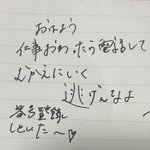 おはよう
仕事おわったら電話して
むかえにいく
逃げんなよ
番号登録
しといた〜